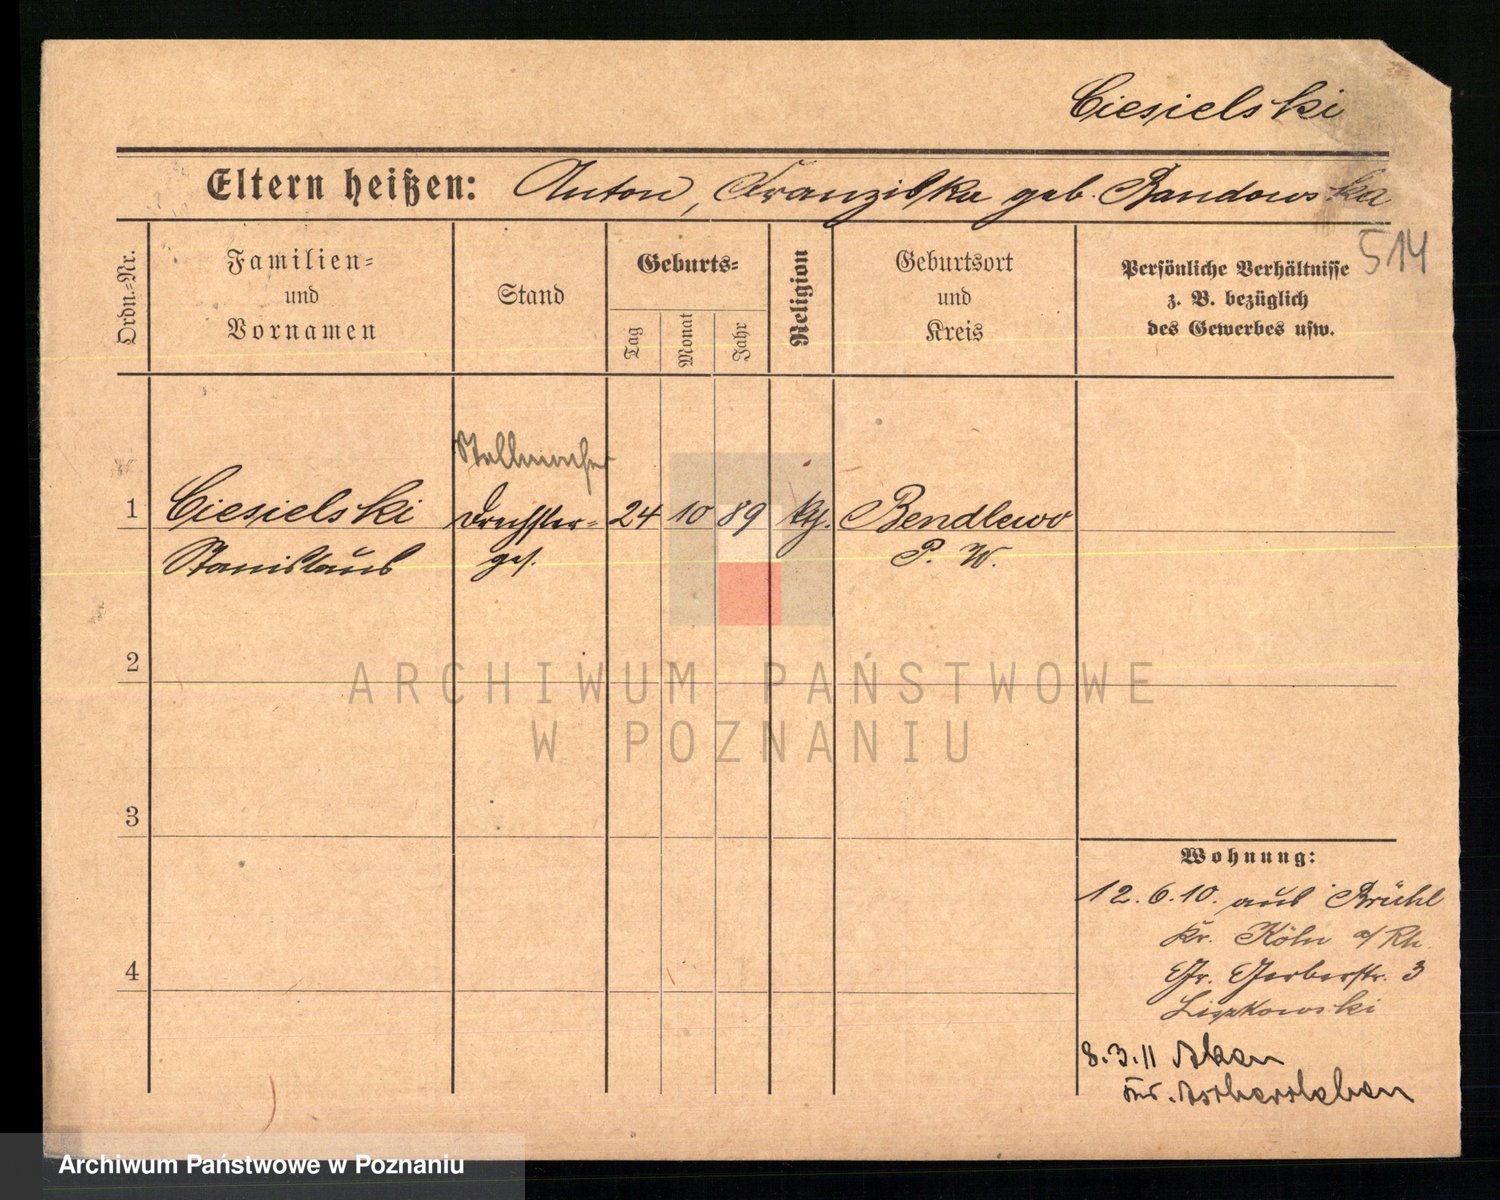 Ciesielski
Eltern heißen: Anton, Franziska geb. Bandowska
514
Ordn.=Nr.
Familien=
und
Vornamen
Stand
Geburts=
Tag
Monat
Jahr
Religion
Geburtsort
und
Kreis
Persönliche Verhältnisse
z. B. bezüglich
des Gewerbes usw.
Stellmacher
1 Ciesielski Drechsler= 24 10 89 kth. Bendlewo
Stanislaus ges. P. W.
2
3
4
Wohnung:
12.6.10. aus Brühl
Kr. Köln a/Rh.
Gr. Gerberstr. 3
Liszkowski
8.3.11 Aken
Aschersleben
ARCHIWUM PAŃSTWOWE
W POZNANIU
Archiwum Państwowe w Poznaniu